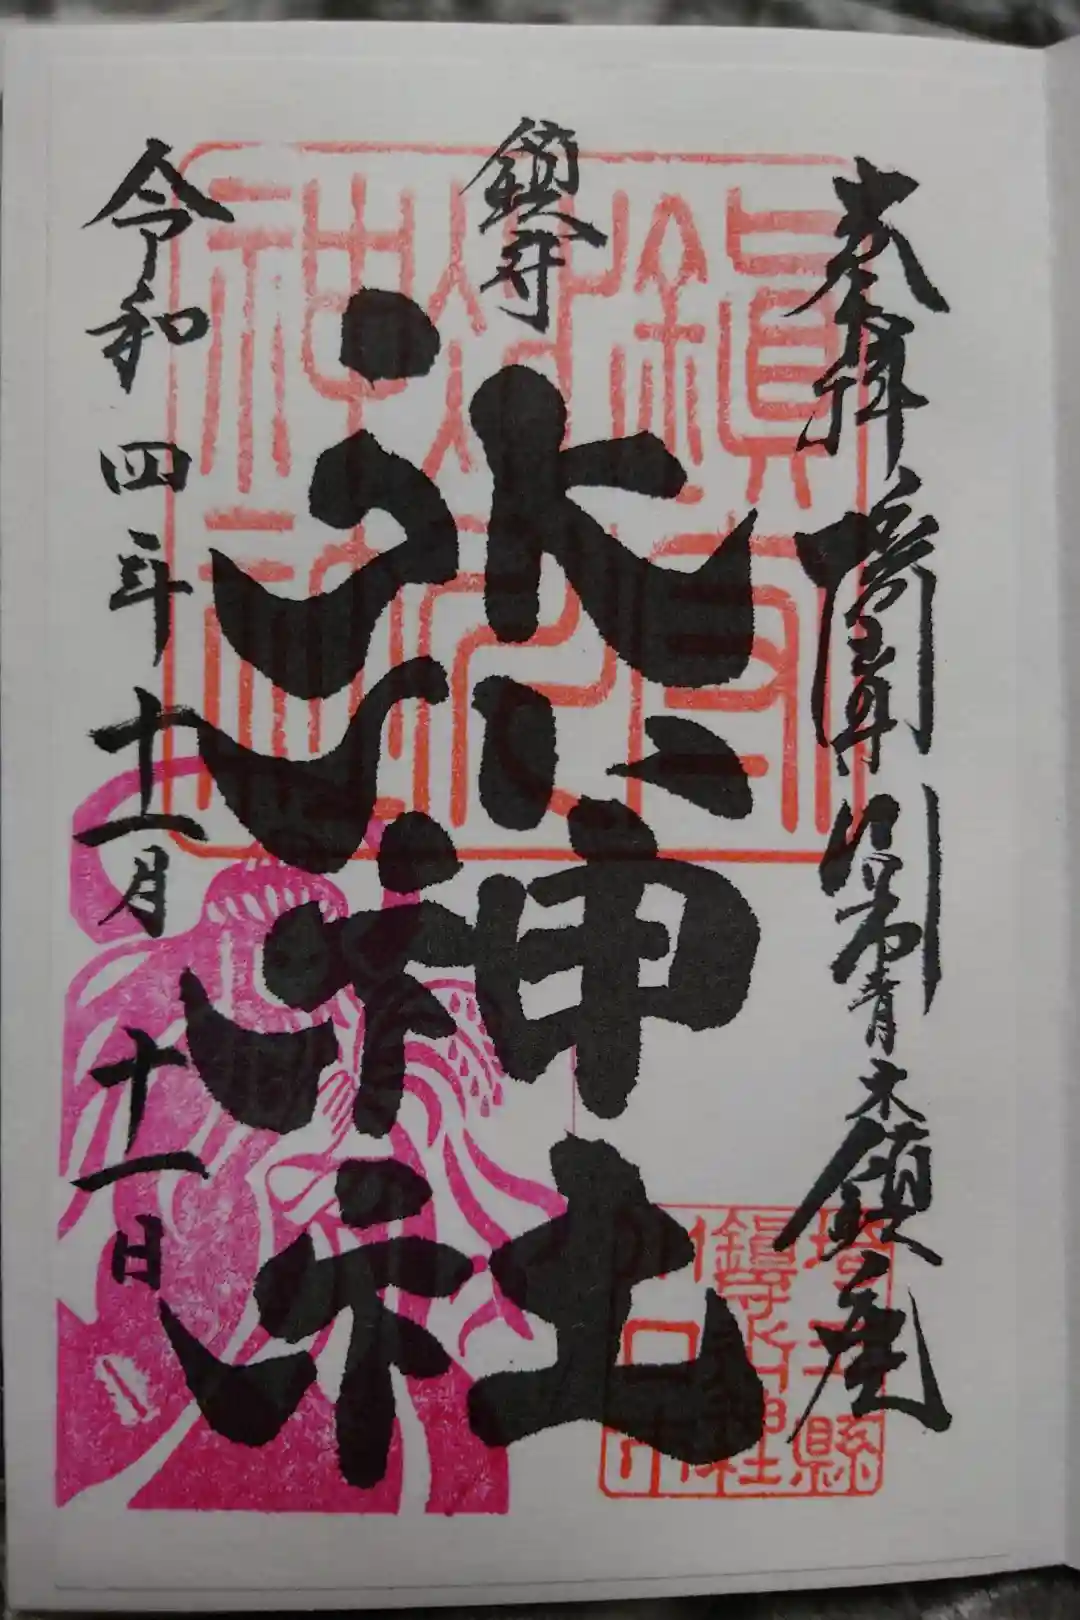 奉拝 埼玉県川口市青木鎮座
鎮守
氷川神社
令和四年十一月十一日
鎮守氷川神社
埼玉縣
川口市
鎮守氷川神社